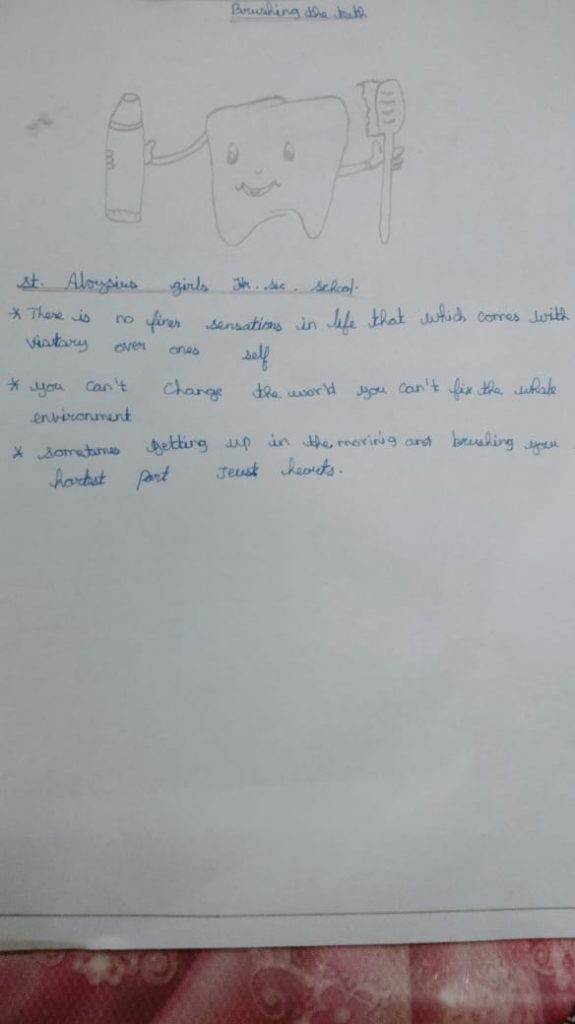 Brushing the teeth
St. Aloysius girls Hr. sec. School.
* There is no finer sensations in life that which comes with
victary over ones self
* you can't change the world you can't fix the whole
environment
* sometimes getting up in the morinig and brushing your
hardest part Jeust hearts.